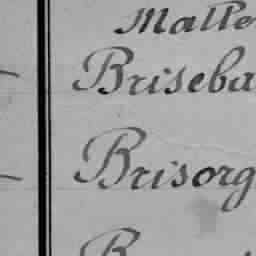 Malte
Briseba
Brisorg
B